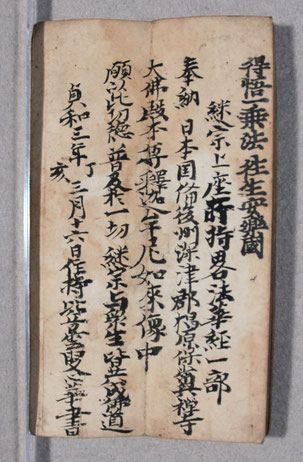 得悟一乗法 往生安樂國
継宗上座所持畧法華経一部
奉納 日本国備後州深津郡椙原保眞禅寺
大佛殿本尊釋迦牟尼如来像中
願以此功徳 普及於一切 継宗与衆生 皆共成佛道
貞和三年丁亥三月十六日住持 叟 書